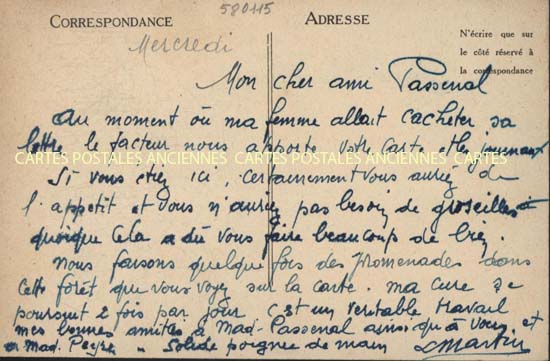 580115
CORRESPONDANCE
ADRESSE
N'écrire que sur
le côté réservé à
la correspondance
Mercredi
Mon cher ami Passenal
Au moment où ma femme allait cacheter sa
lettre le facteur nous apporte votre carte et les journaux
CARTES POSTALES ANCIENNES CARTES POSTALES ANCIENNES CARTES
Si vous étiez ici, certainement vous auriez de
l'appetit et vous n'auriez pas besoin de groseilles
quoique cela a dû vous faire beaucoup de
Nous faisons quelque fois des promenades dans
cette forêt que vous voyez sur la carte. ma cure se
poursuit 2 fois par jour c'est un veritable travail
mes bonnes amitiés à Mad. Passenal ainsi qu'à vous et
à Mad. Solide poignee de main L Martin